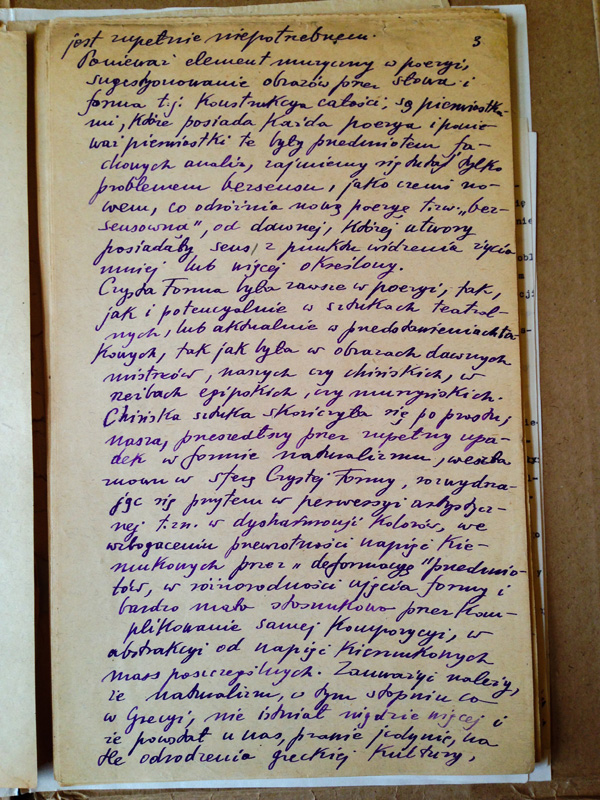 3
jest zupełnie niepotrzebnem.
Ponieważ element muzyczny w poezyi,
sugestyonowanie obrazów przez słowa i
forma t.j. konstrukcya całości, są pierwiastka-
mi, które posiada każda poezya i ponie-
waż pierwiastki te były przedmiotem fa-
chowych analiz, zajmiemy się tutaj tylko
problemem bezsensu, jako czemś no-
wem, co odróżnia nową poezyę t.zw. „bez-
sensowną", od dawnej, której utwory
posiadały sens, z punktu widzenia życia
mniej lub więcej określony.
Czysta Forma była zawsze w poezyi, tak,
jak i potencyalnie w sztukach teatral-
nych, lub aktualnie w przedstawieniach ta-
kowych, tak jak była w obrazach dawnych
mistrzów, naszych czy chińskich, w
rzeźbach egipskich, czy murzyńskich.
Chińska sztuka skończyła się po prostu,
nasza, przeszedłszy przez zupełny upa-
dek w formie naturalizmu, weszła
znowu w sferę Czystej Formy, rozwydrza-
jąc się przytem w perwersyi artystycz-
nej t.zn. w dysharmonji kolorów, we
wzbogaceniu przewrotności napięć kie-
runkowych przez „deformacyę" przedmio-
tów, w różnorodności ujęcia formy i
bardzo mało stosunkowo przez kom-
plikowanie samej kompozycyi, w
abstrakcyi od napięć kierunkowych
mass poszczególnych. Zauważyć należy,
że naturalizm, w tym stopniu co
w Grecyi, nie istniał nigdzie więcej i
że powstał u nas, prawie jedynie, na
tle odrodzenia greckiej kultury,